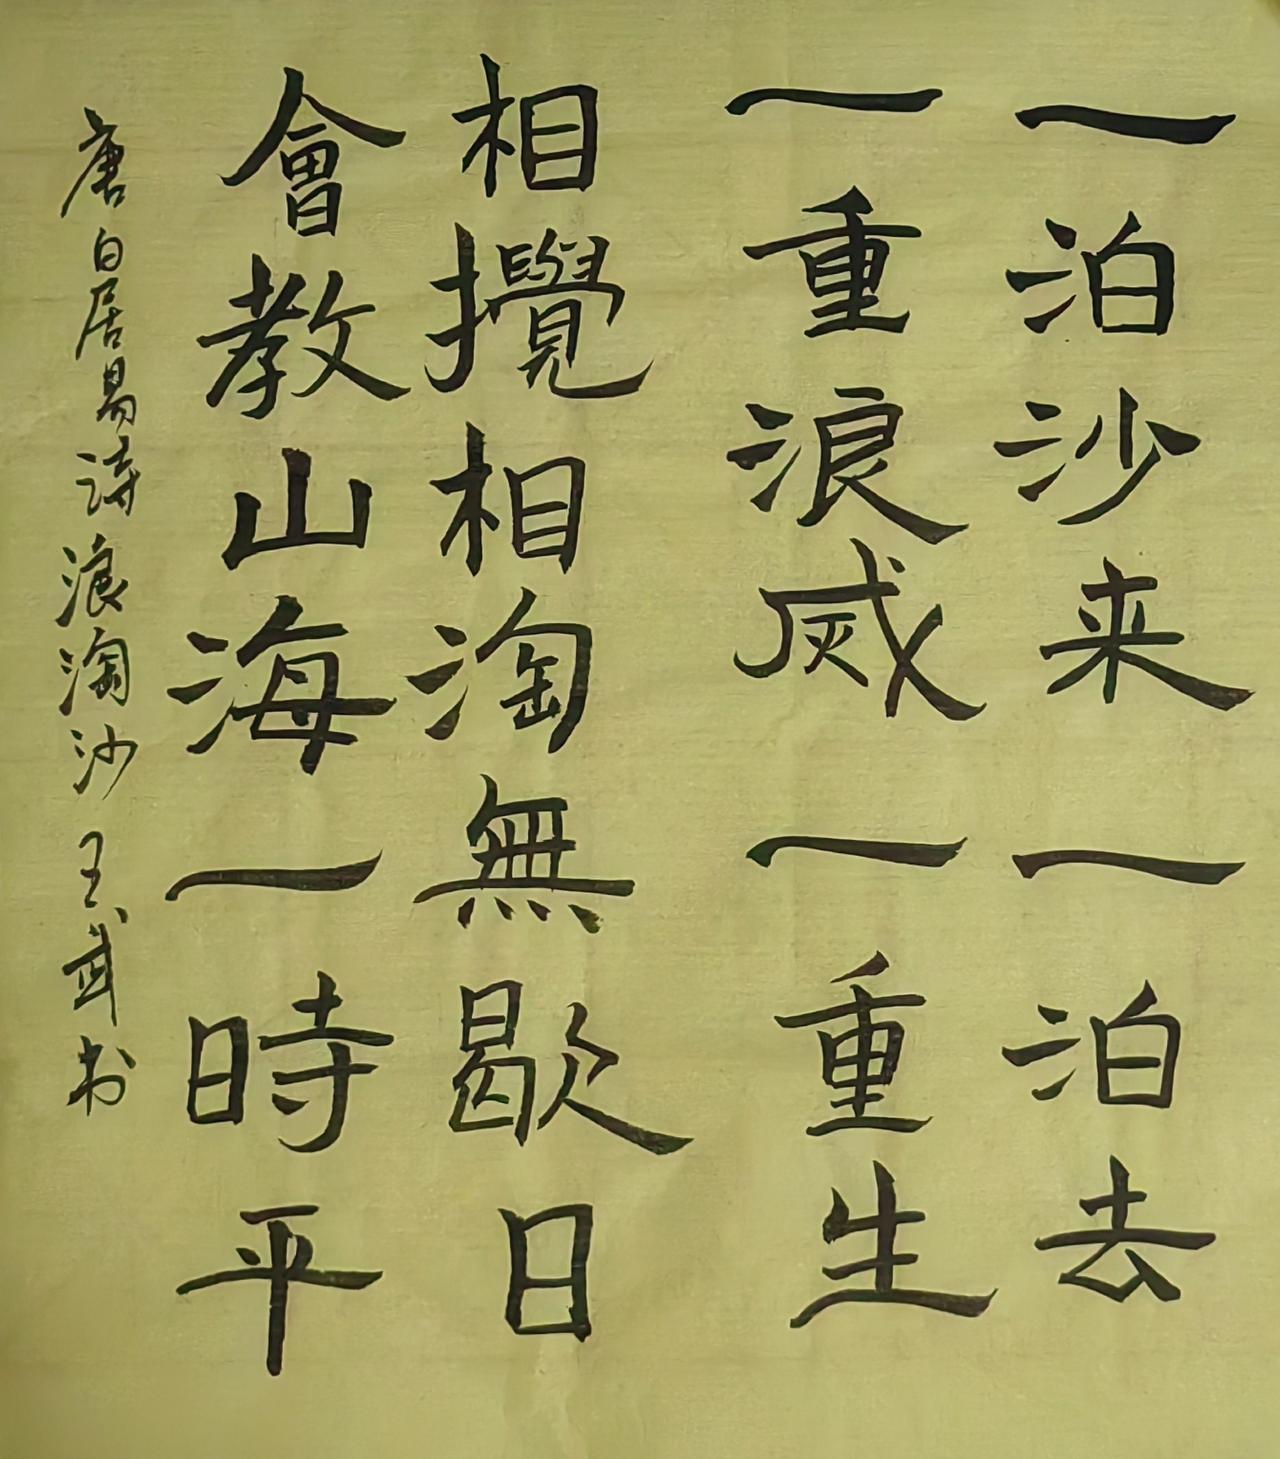 一泊沙来一泊去
一重浪威一重生
相攪相淘無歇日
會教山海一時平
唐白居易诗浪淘沙王武书